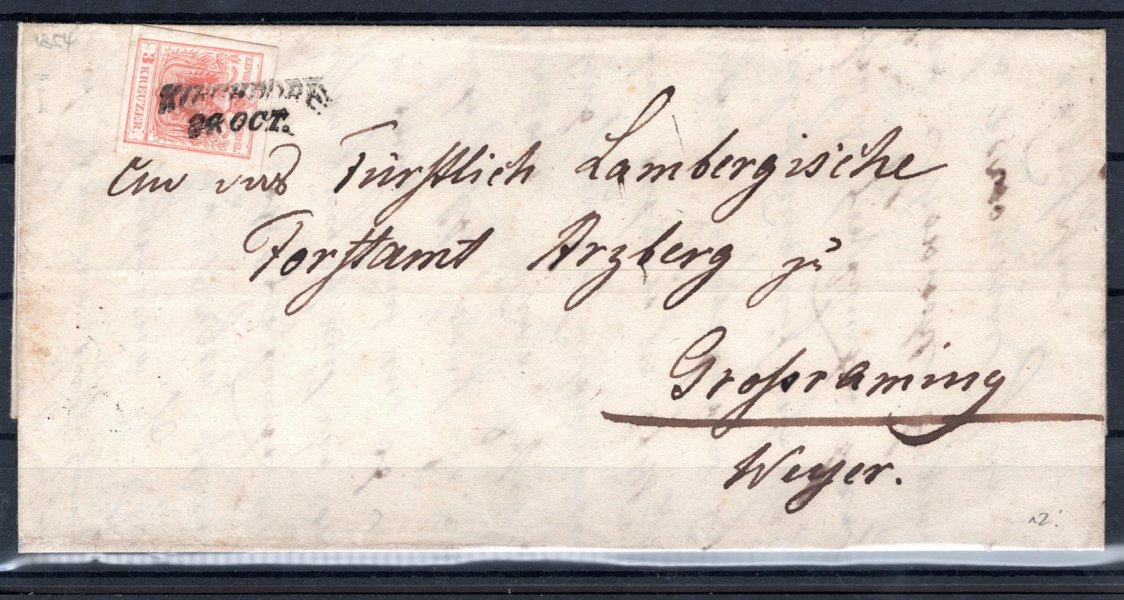 1854
3 KREUZER.
KIRCHDORF
OCT.
An das Fürstlich Lambergische
Forstamt Arzberg zu
Großraming
Weyer.